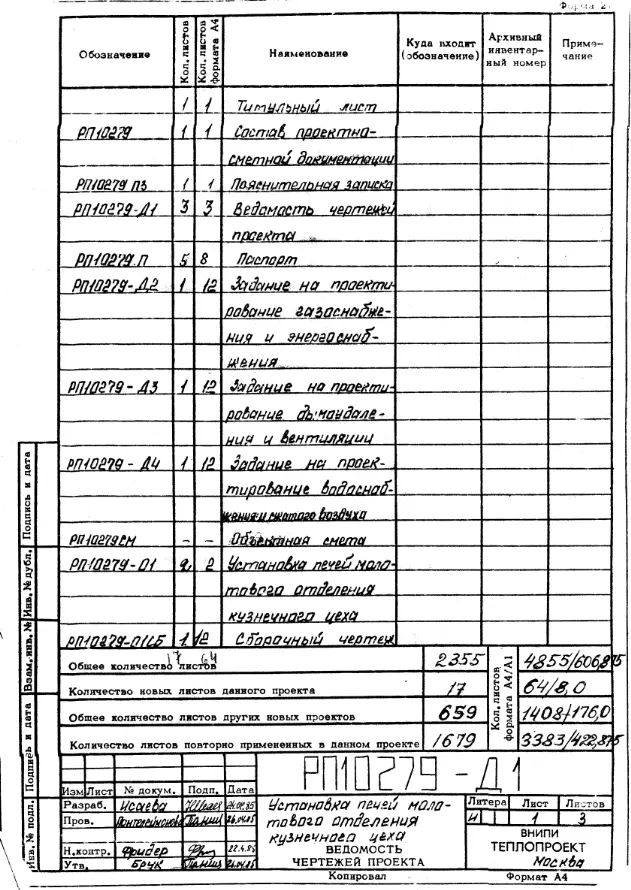 Форма 2
Обозначение Кол. листов Кол. листов формата А4 Наименование Куда входит (обозначение) Архивный инвентарный номер Примечание
1 1 Титульный лист
РП10279 1 1 Состав проектно-
сметной документации
РП10279 ПЗ 1 1 Пояснительная записка
РП10279-Д1 3 3 Ведомость чертежей
проекта
РП10279.П 5 8 Паспорт
РП10279-Д2 1 12 Задание на проекти-
рование газоснабже-
ния и энергоснаб-
жения
РП10279-Д3 1 12 Задание на проекти-
рование дымоудале-
ния и вентиляции
РП10279-Д4 1 12 Задание на проек-
тирование водоснаб-
жения и сжатого воздуха
РП10279СМ – – Объектная смета
РП10279-01 2 2 Установка печей моло-
тового отделения
кузнечного цеха
РП10279-01СБ 1 12 Сборочный чертеж
17 64
Общее количество листов 2355 Кол. листов формата А4/А1 4855/606,875
Количество новых листов данного проекта 17 64/8,0
Общее количество листов других новых проектов 659 1408/176,0
Количество листов повторно примененных в данном проекте 1679 3383/422,875
Подпись и дата
Инв. № дубл.
Взам. инв. №
Подпись и дата
Инв. № подл.
РП10279-Д1
Изм Лист № докум. Подп. Дата
Разраб. Исаева
Пров. 26.04.85
Н.контр. Фридер 22.4.85
Утв. Брук
Установка печей моло-
тового отделения
кузнечного цеха
ВЕДОМОСТЬ
ЧЕРТЕЖЕЙ ПРОЕКТА
Литера Лист Листов
И 1 3
ВНИПИ
ТЕПЛОПРОЕКТ
Москва
Копировал Формат А4